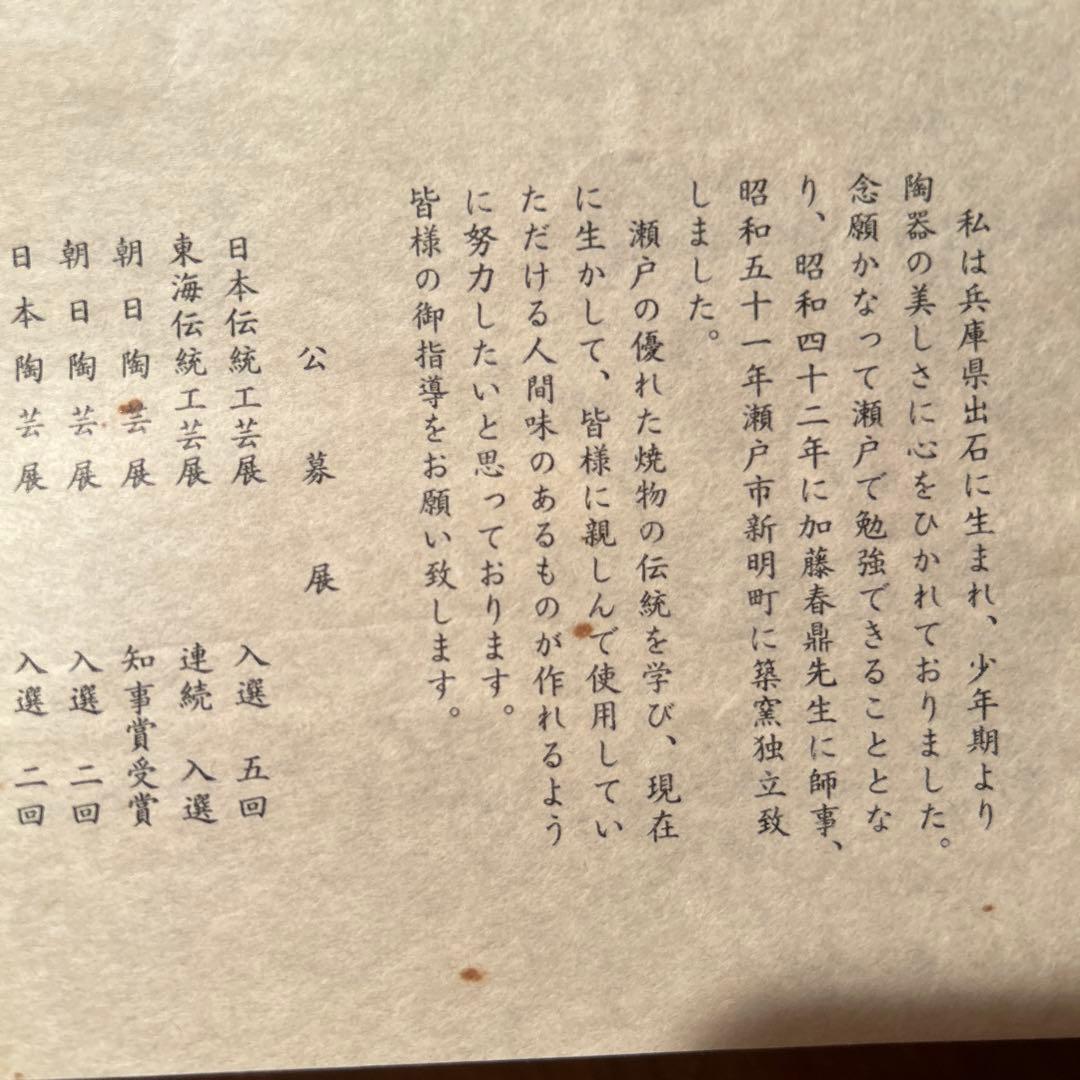 私は兵庫県出石に生まれ、少年期より
陶器の美しさに心をひかれておりました。
念願かなって瀬戸で勉強できることとな
り、昭和四十二年に加藤春鼎先生に師事、
昭和五十一年瀬戸市新明町に築窯独立致
しました。
瀬戸の優れた焼物の伝統を学び、現在
に生かして、皆様に親しんで使用してい
ただける人間味のあるものが作れるよう
に努力したいと思っております。
皆様の御指導をお願い致します。
公募展
日本伝統工芸展 入選 五回
東海伝統工芸展 連続 入選
朝日陶芸展 知事賞受賞
朝日陶芸展 入選 二回
日本陶芸展 入選 二回